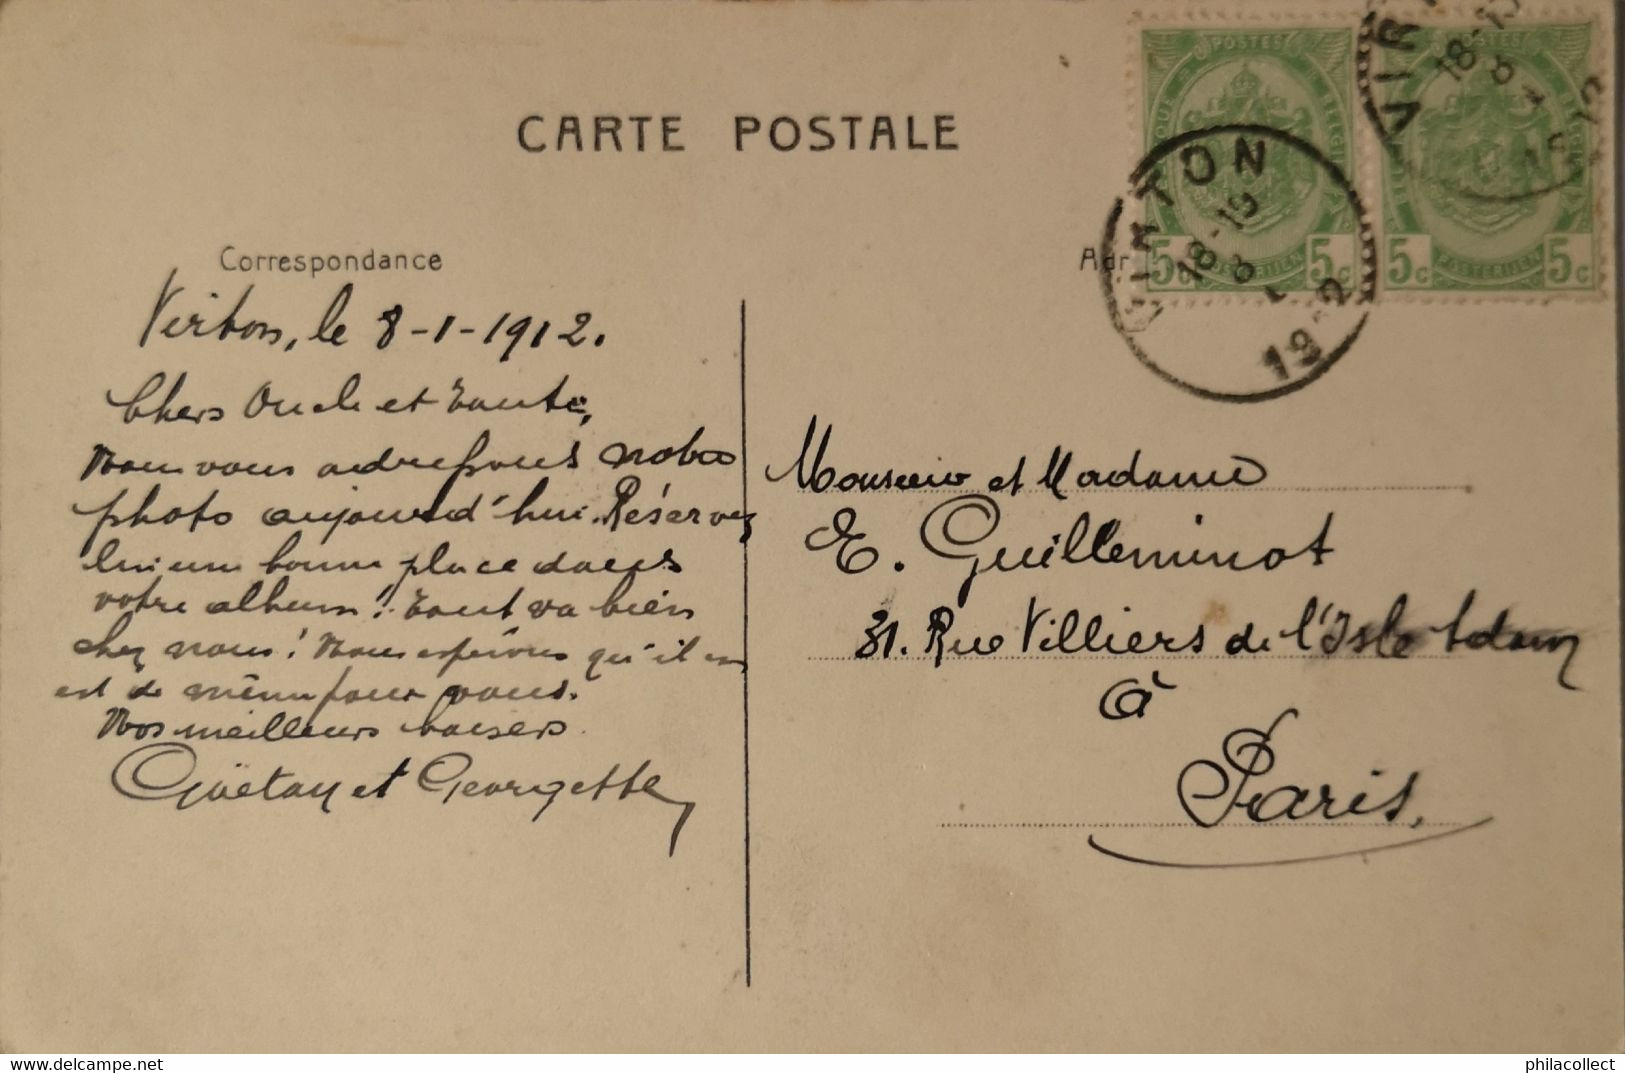 CARTE POSTALE
Correspondance
Virton, le 8-1-1912.
Chers Oncle et Tante,
Nous vous adressons notre
photo aujourd'hui. Réservez
lui une bonne place dans
votre album! Tout va bien
chez nous! Nous espérons qu'il en
est de même pour vous.
Nos meilleurs baisers.
Gaëtan et Georgette
Adr
POSTES
BELGIQUE
5c POSTERIJEN 5c
POSTES
5c POSTERIJEN 5c
VIRTON
18-19
8
1
1912
VIR
18-19
8
1
Monsieur et Madame
E. Guilleminot
31. Rue Villiers de l'Isle Adam
à
Paris.
philacollect